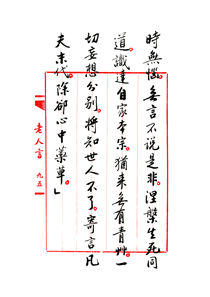 時無惱。無言不說是非。涅槃生死同
道。識達自家本宗。猶來無有青艸。一
切妄想分別。將知世人不了。寄言凡
夫末代。除卻心中藁草」
老人言 九五